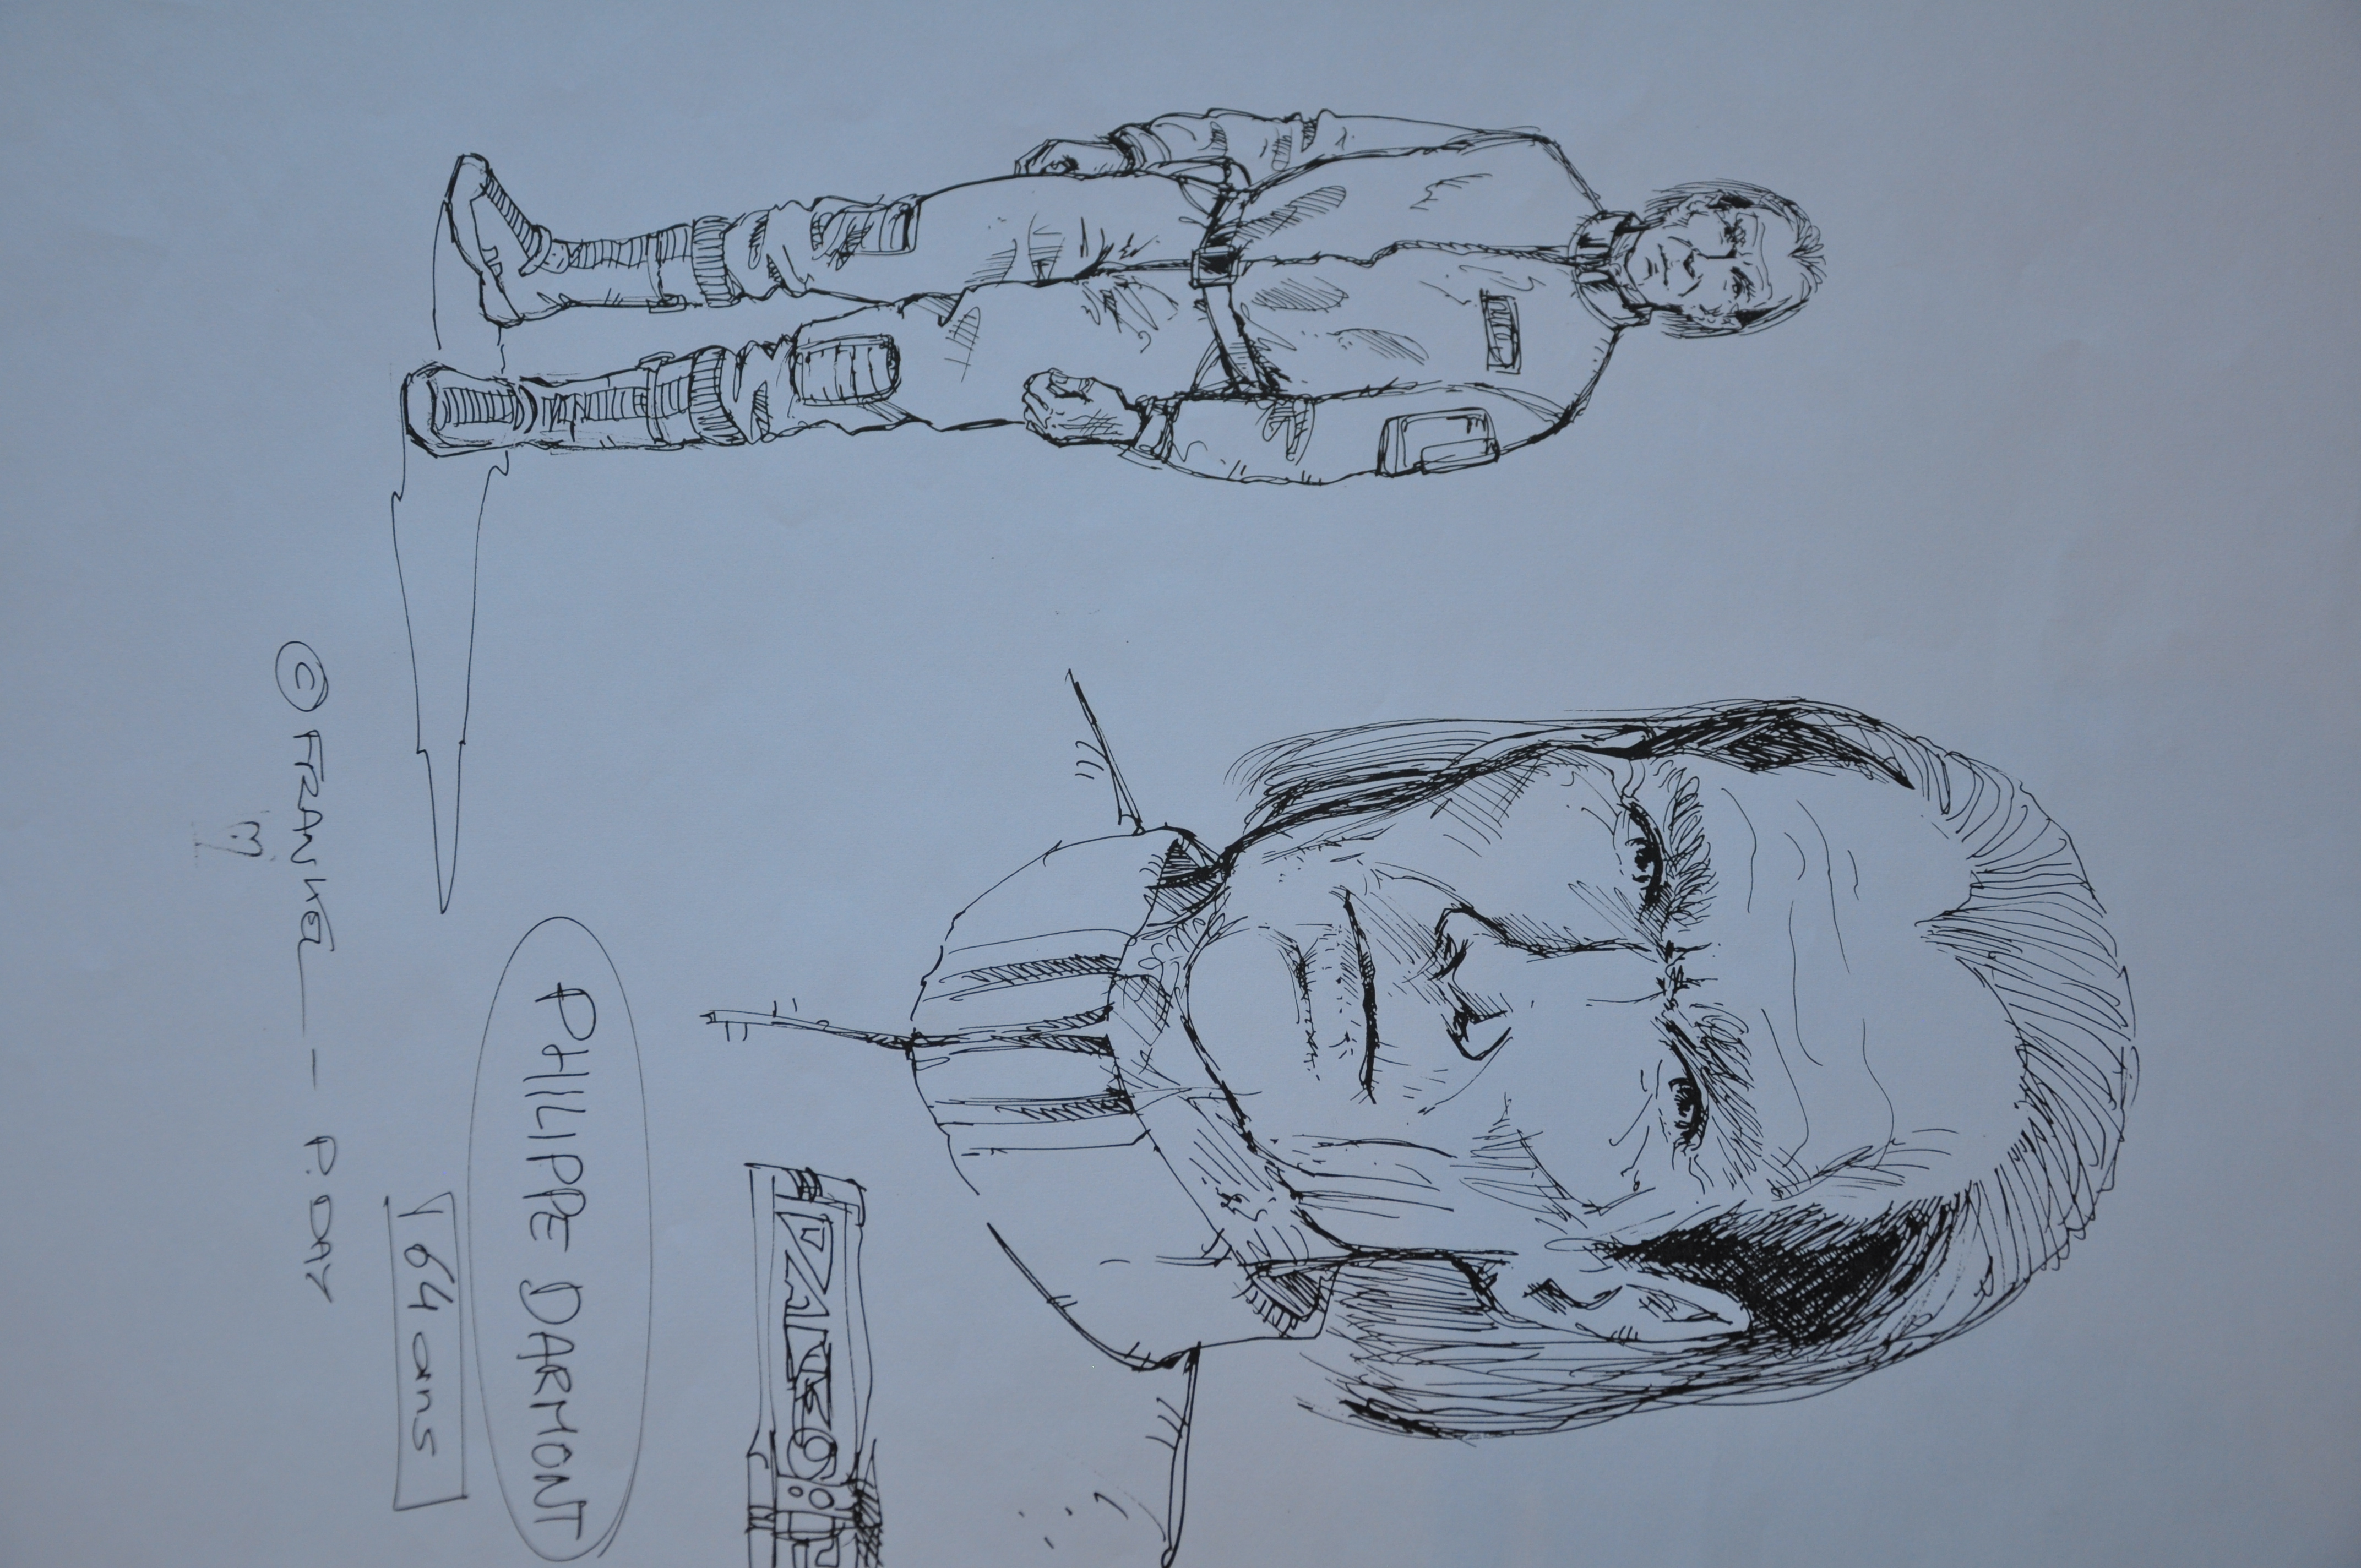 PHILIPPE DARMONT
64 ans
© FRANKEL — P. DAY